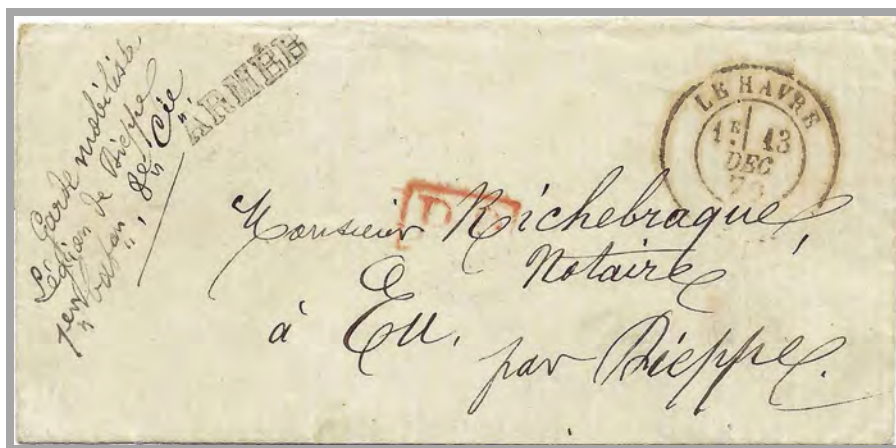 Garde mobilisée
Légion de Dieppe
1er batan, 8e Cie
ARMÉE
LE HAVRE
1E 13
DEC
P.P.
Monsieur Richebraque,
Notaire
à Eu.
par Dieppe.